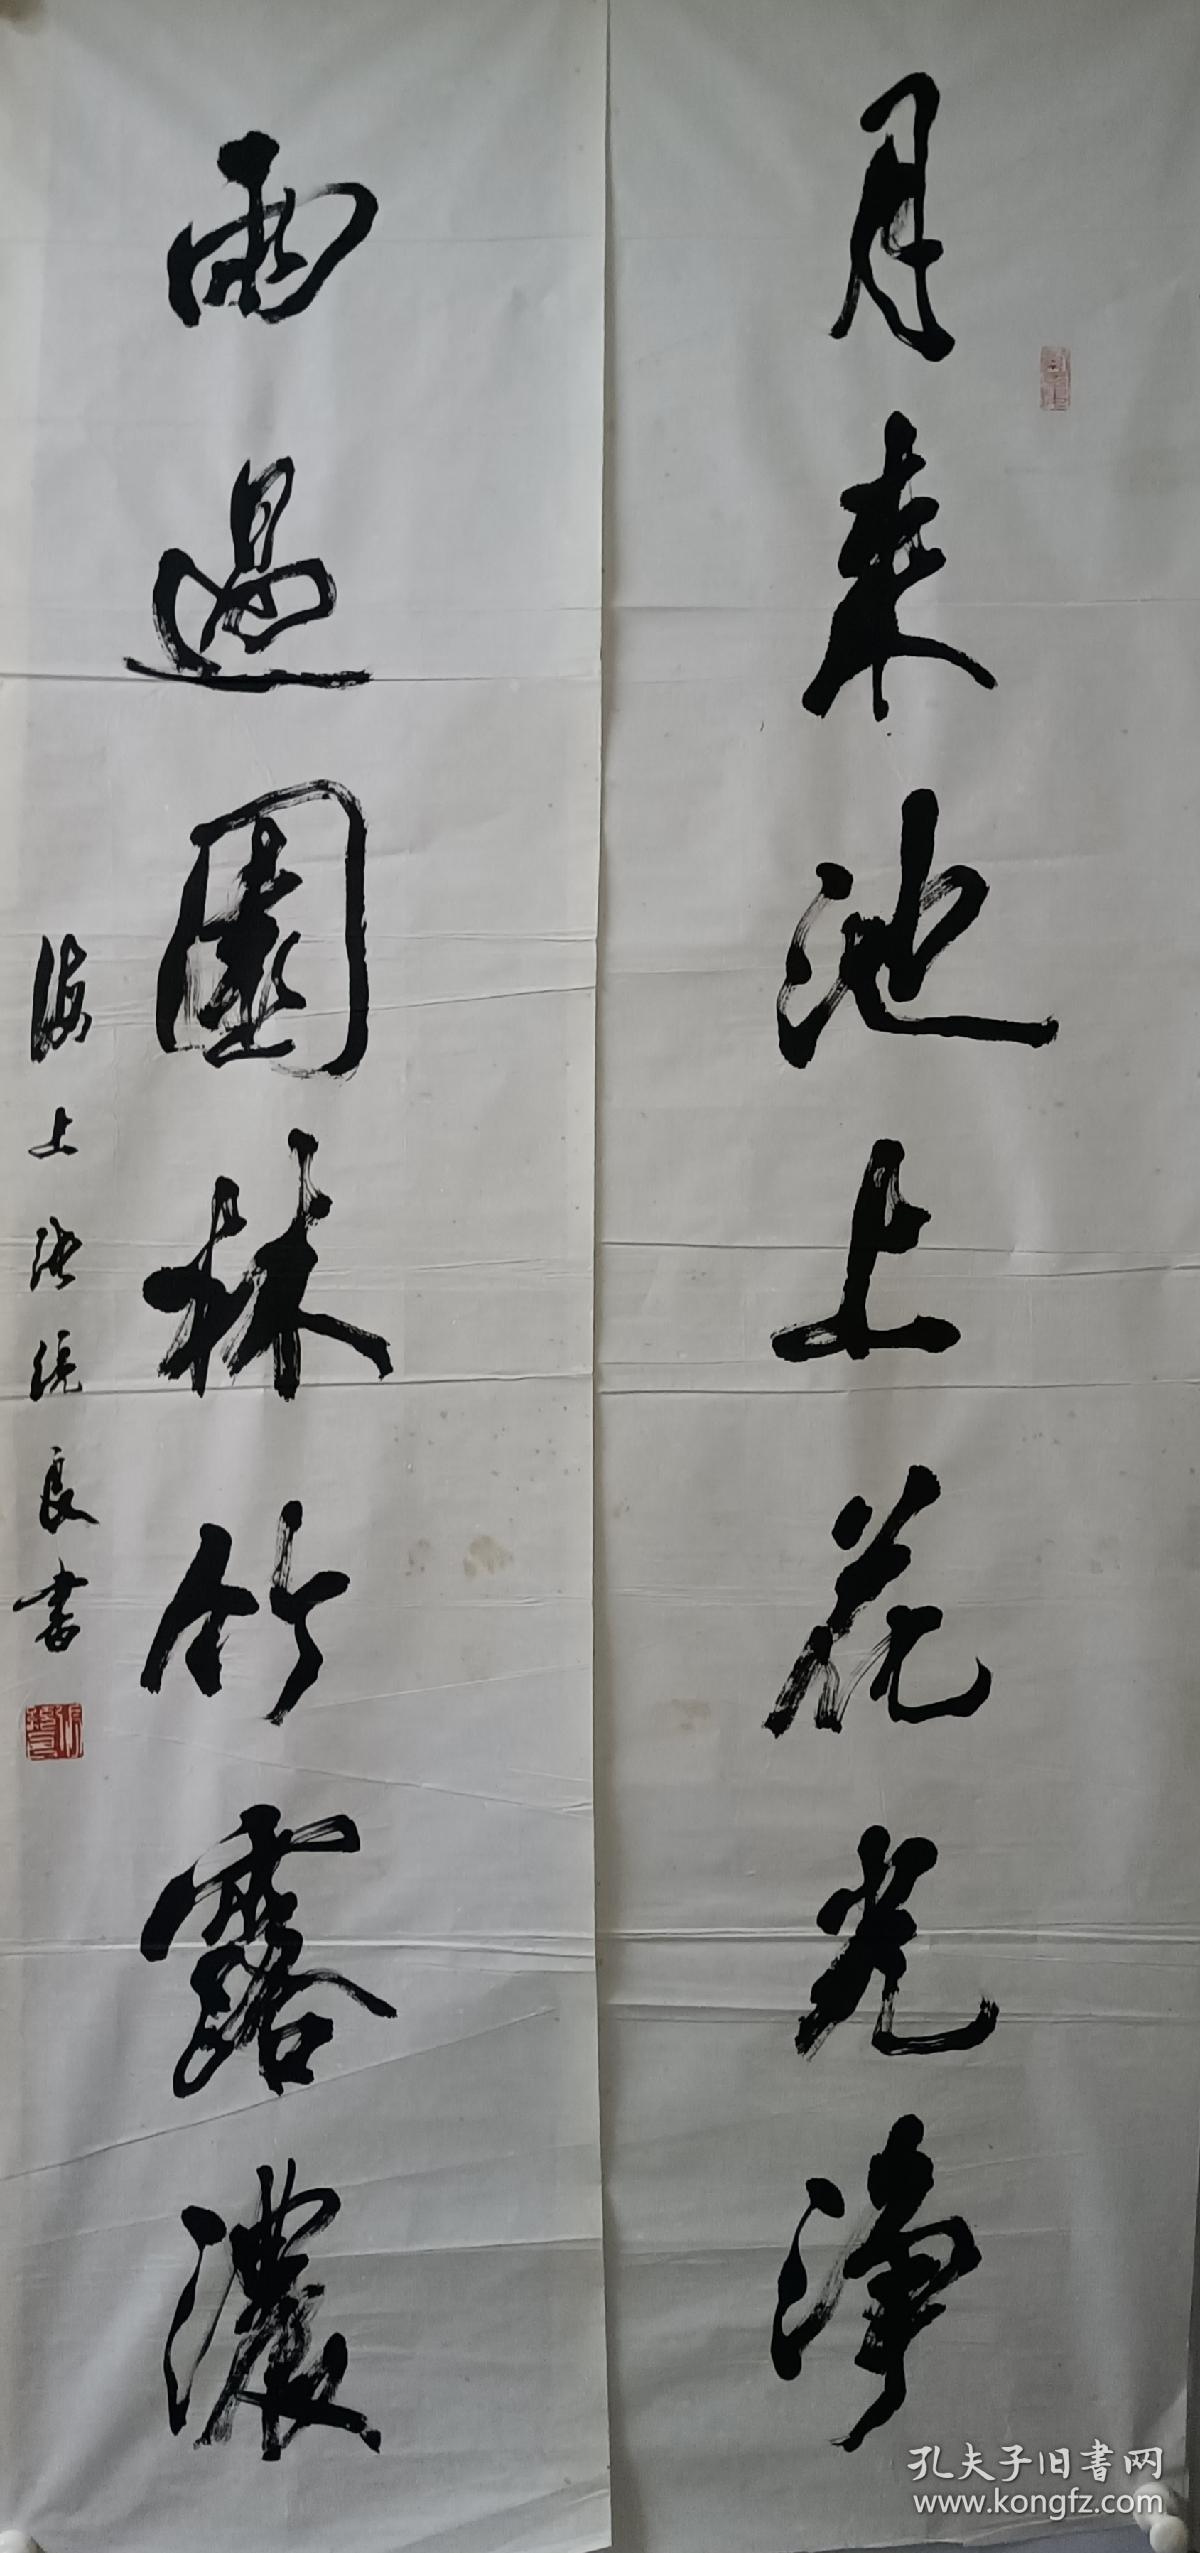 月来池上花光净
雨過園林竹露濃
海上張統良書
孔夫子旧書网
www.kongfz.com